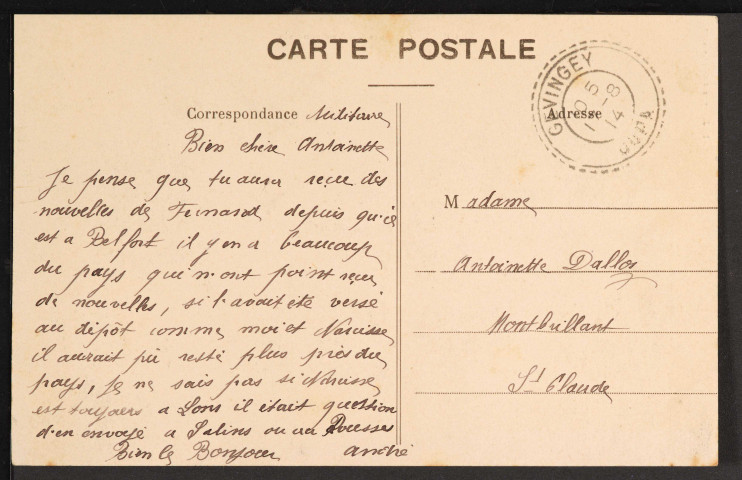 CARTE POSTALE
Correspondance Militaire
Bien chère Antoinette
Je pense que tu aura reçue des
nouvelles de Fernand depuis qu'il
est a Belfort il y en a beaucoup
du pays qui n'ont point reçue
de nouvelles, si l'avait été versé
au dépôt comme moi et Narcisse
il aurait pû resté plus près du
pays, Je ne sais pas si Narcisse
est toujours a Lons il était question
d'en envoyé a Salins ou au Rousses
Bien le Bonjour André
GEVINGEY
5 - 8
14
JURA
Adresse
Madame
Antoinette Dalloz
Montbrillant
St Claude